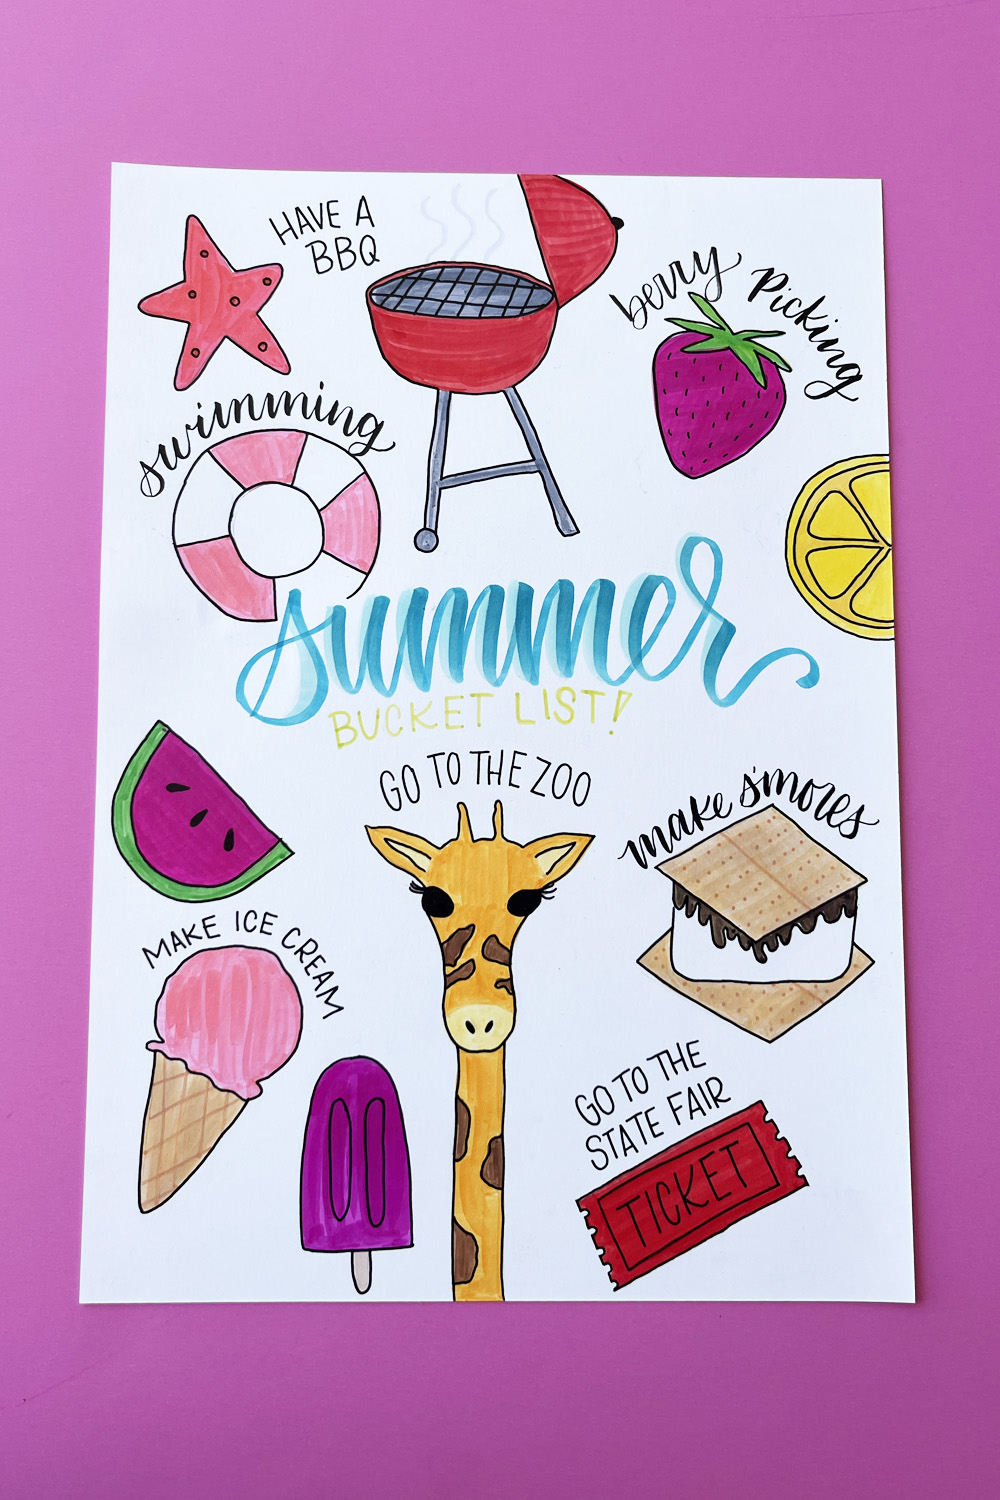 HAVE A
BBQ
berry picking
swimming
summer
BUCKET LIST!
GO TO THE ZOO
make s'mores
MAKE ICE CREAM
GO TO THE
STATE FAIR
TICKET